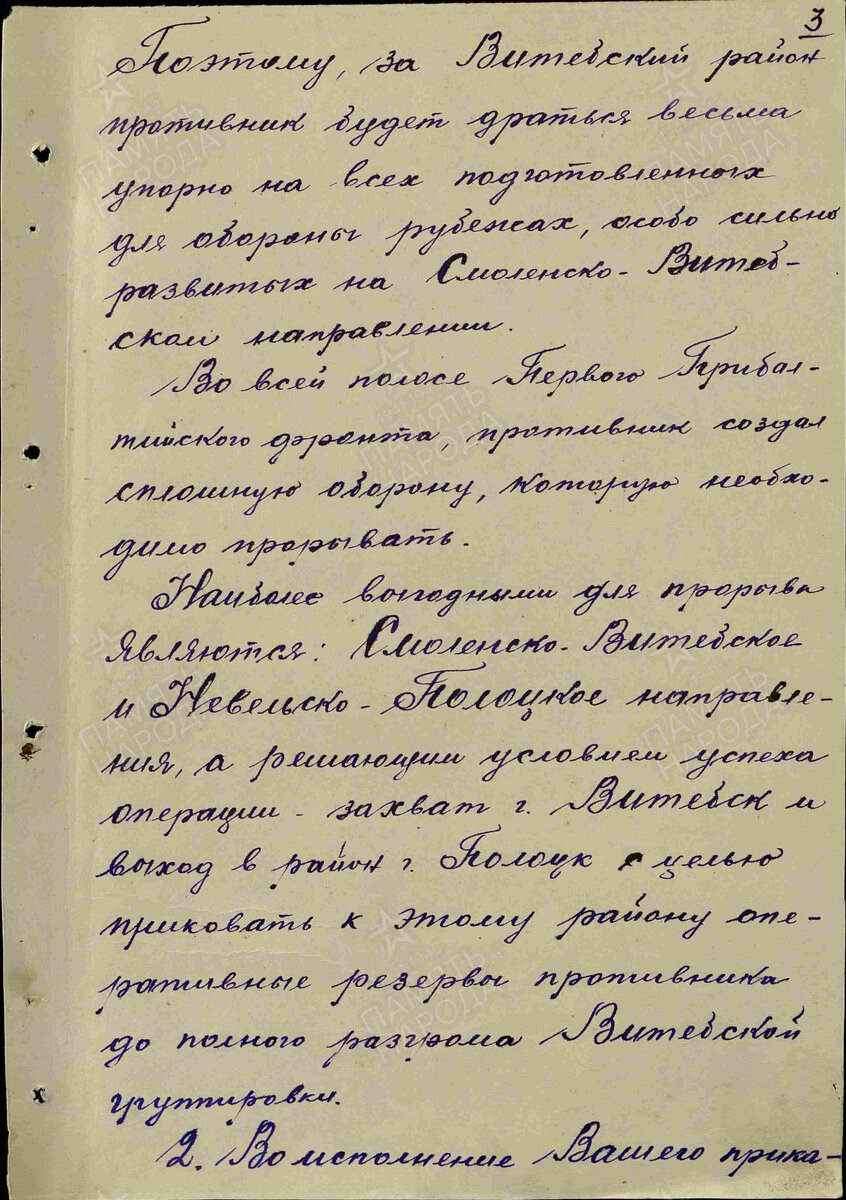 3
Поэтому, за Витебский район
противник будет драться весьма
упорно на всех подготовленных
для обороны рубежах, особо сильно
развитых на Смоленско-Витеб-
ском направлении.
Во всей полосе Первого Прибал-
тийского фронта, противник создал
сплошную оборону, которую необхо-
димо прорывать.
Наиболее выгодными для прорыва
являются: Смоленско-Витебское
и Невельско-Полоцкое направле-
ния, а решающим условием успеха
операции - захват г. Витебск и
выход в район г. Полоцк с целью
приковать к этому району опе-
ративные резервы противника
до полного разгрома Витебской
группировки.
2. Во исполнение Вашего прика-
ПАМЯТЬ НАРОДА
ПАМЯТЬ НАРОДА
ПАМЯТЬ НАРОДА
ПАМЯТЬ НАРОДА
ПАМЯТЬ НАРОДА
ПАМЯТЬ НАРОДА